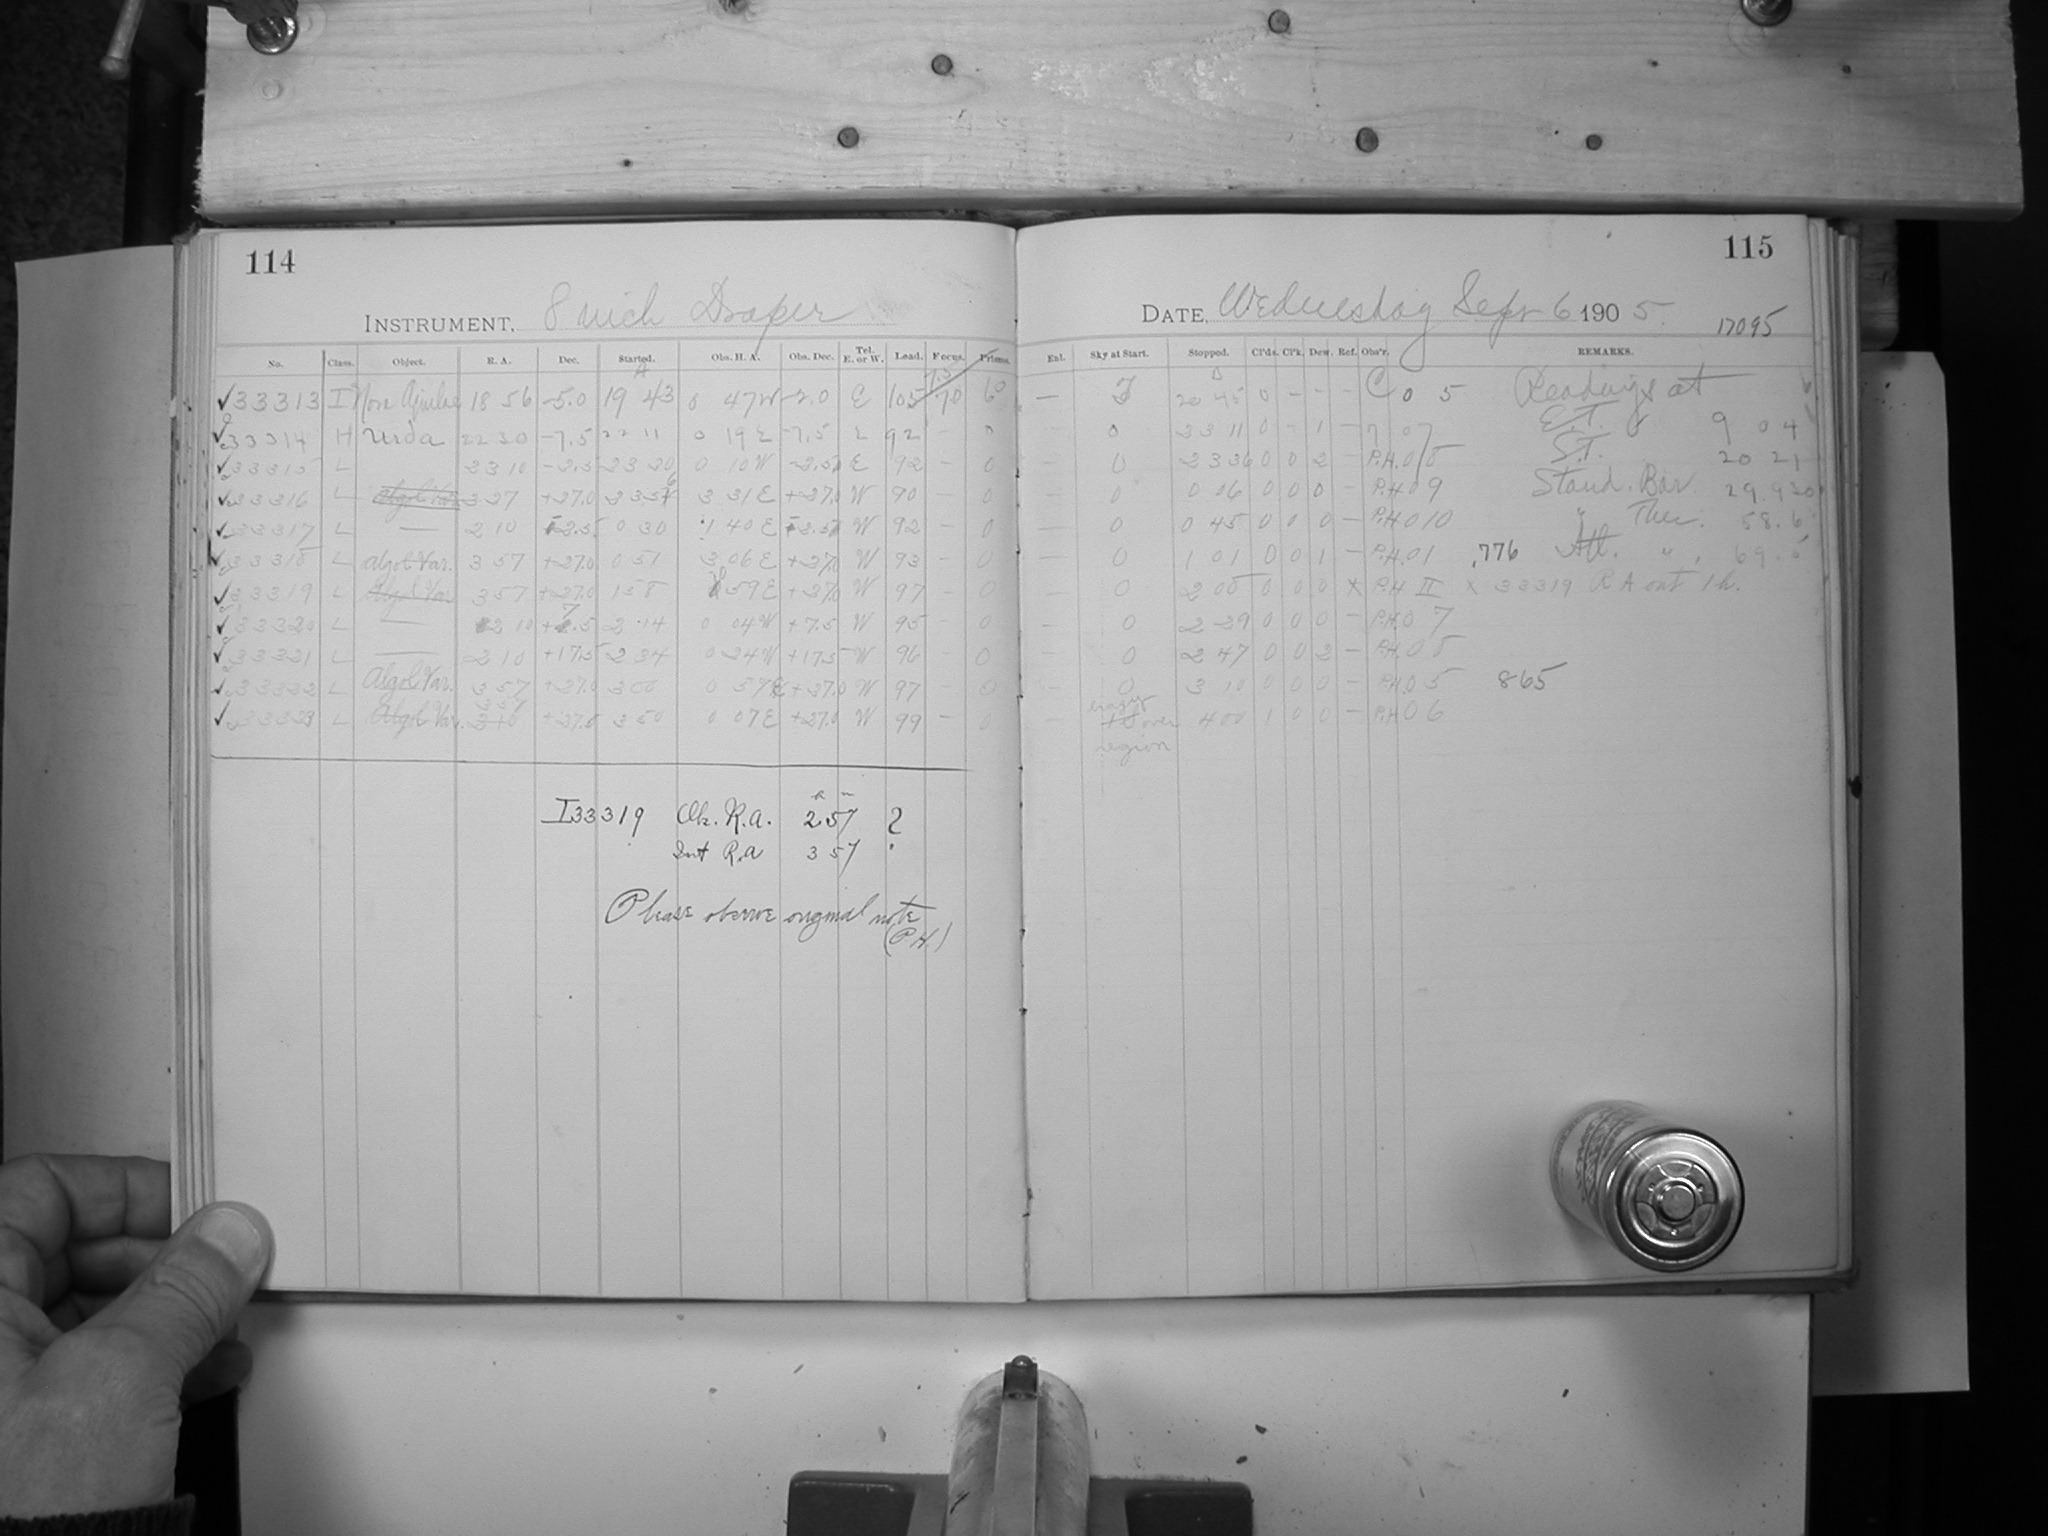 114
INSTRUMENT, 8 inch Draper
No. Class. Object. R. A. Dec. Started. Obs. H. A. Obs. Dec. Tel. E. or W. Lead. Focus. Prisms.
33313 I Nova Aquilae 18 56 -5.0 19 43 0 47 W -2.0 E 105 70
33314 H Urda 22 30 -7.5 22 11 0 19 E -7.5 E 92 - 0
33315 L 23 10 -2.5 23 20 0 10 W -2.5 E 92 - 0
33316 L Algol Var. 3 27 +27.0 3 31 E +27.0 W 90 - 0
33317 L — 2 10 -2.5 0 30 1 40 E -2.5 W 92 - 0
33318 L Algol Var. 3 57 +27.0 0 51 3 06 E +27.0 W 93 - 0
33319 L Algol Var 3 57 +27.0 1 58 59 E +27.0 W 97 - 0
33320 L — 2 10 +7.5 2 14 0 04 W +7.5 W 95 - 0
33321 L — 2 10 +17.5 2 34 0 24 W +17.5 W 96 - 0
33322 L Algol Var. 3 57 +27.0 3 00 0 57 E +27.0 W 97 - 0
33323 L Algol Var. 3 57 +27.0 3 50 0 07 E +27.0 W 99 - 0
h m
I33319 Ob. R.A. 2 57 ?
Int R.A 3 57
Please observe original note
(P.H.)
115
DATE, Wednesday Sept 6 1905.
17095
Ent. Sky at Start. Stopped. Cl'ds. Cl'k. Dew. Ref. Obs'r. REMARKS.
— 20 45 0 - - - C 0 5 Readings at
— 0 23 11 0 - 1 - 7 07 E.T. 9 04
— 0 23 36 0 0 2 - P.H. 0 8 S.T. 20 21
— 0 0 06 0 0 0 - P.H. 0 9 Stand. Bar. 29.920
— 0 0 45 0 0 0 - P.H. 0 10 " Ther. 58.6
— 0 1 01 0 0 1 - P.H. 0 1 .776 Att. " 69.5
— 0 2 05 0 0 0 x P.H II x 33319 R A out 1h.
— 0 2 29 0 0 0 - P.H. 0 7
— 0 2 47 0 0 2 - P.H. 0 8
— 0 3 10 0 0 0 - P.H. 0 5 865
— over 4 00 1 0 0 - P.H. 0 6
region